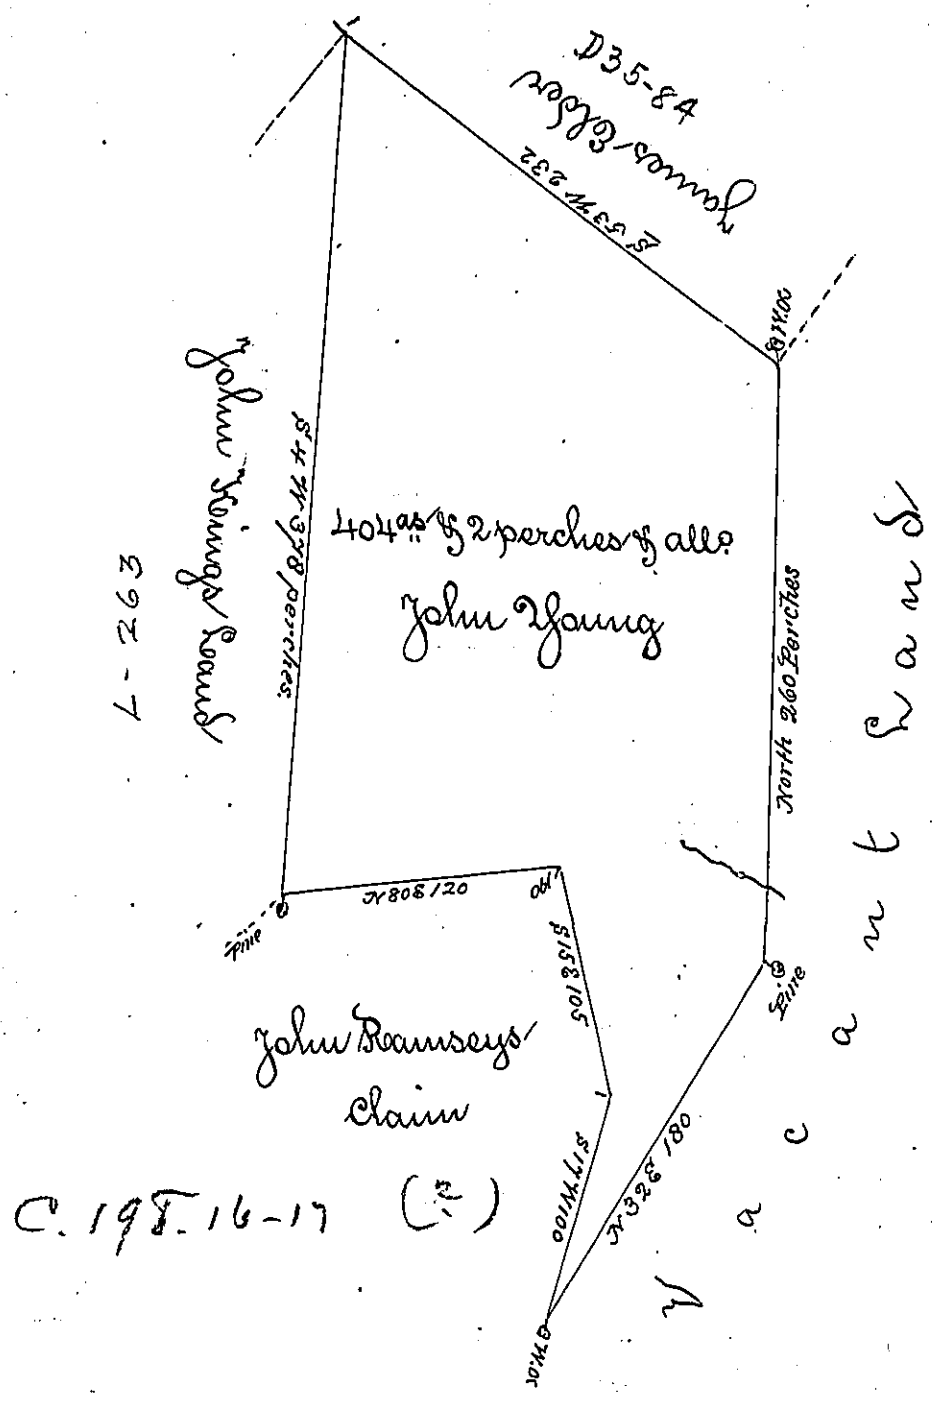 D35-84
James Elder
S 53 W 232
W.O.
John Kings Land
L-263
S 4 W 378 perches.
404 as & 2 perches & allo
John Young
North 260 Perches
Vacant Land
N 80 E 120
Pine
S 15 E 105
Pine
John Ramseys
Claim
S 17 W 100
N 32 E 180
C. 198. 16-17
W.O.